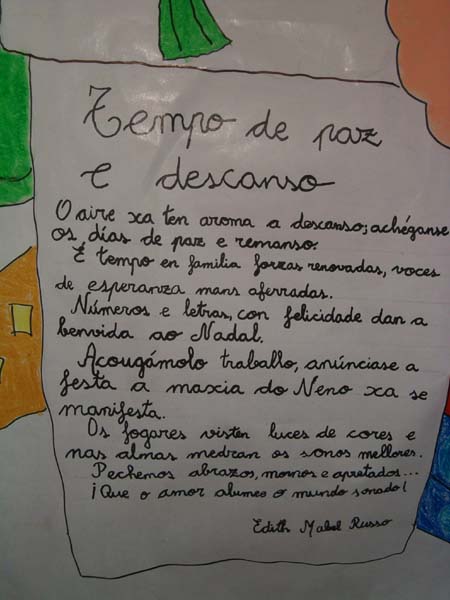 Tempo de paz
e descanso
O aire xa ten aroma a descanso; achéganse
os días de paz e remanso.
É tempo en familia forzas renovadas, voces
de esperanza mans aferradas.
Números e letras, con felicidade dan a
benvida ao Nadal.
Acougámolo traballo, anúnciase a
festa a maxia do Neno xa se
manifesta.
Os fogares visten luces de cores e
nas almas medran os sonos mellores.
Pechemos abrazos, mornos e apretados...
¡Que o amor alumeo o mundo sonado!
Edith Mabel Russo